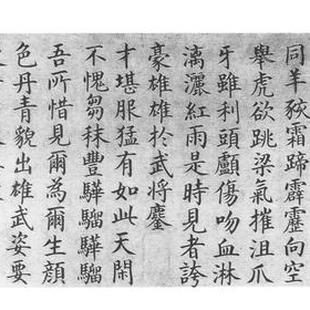 同羊豥霜蹄霹靂向空
舉虎欲跳梁氣摧沮爪
牙雖利頭顱傷吻血淋
漓灑紅雨是時見者誇
豪雄雄於武將鏖
才堪服猛有如此天閑
不愧芻秣豐驊騮驊騮
吾所惜見爾為爾生顔
色丹青貌出雄武姿要